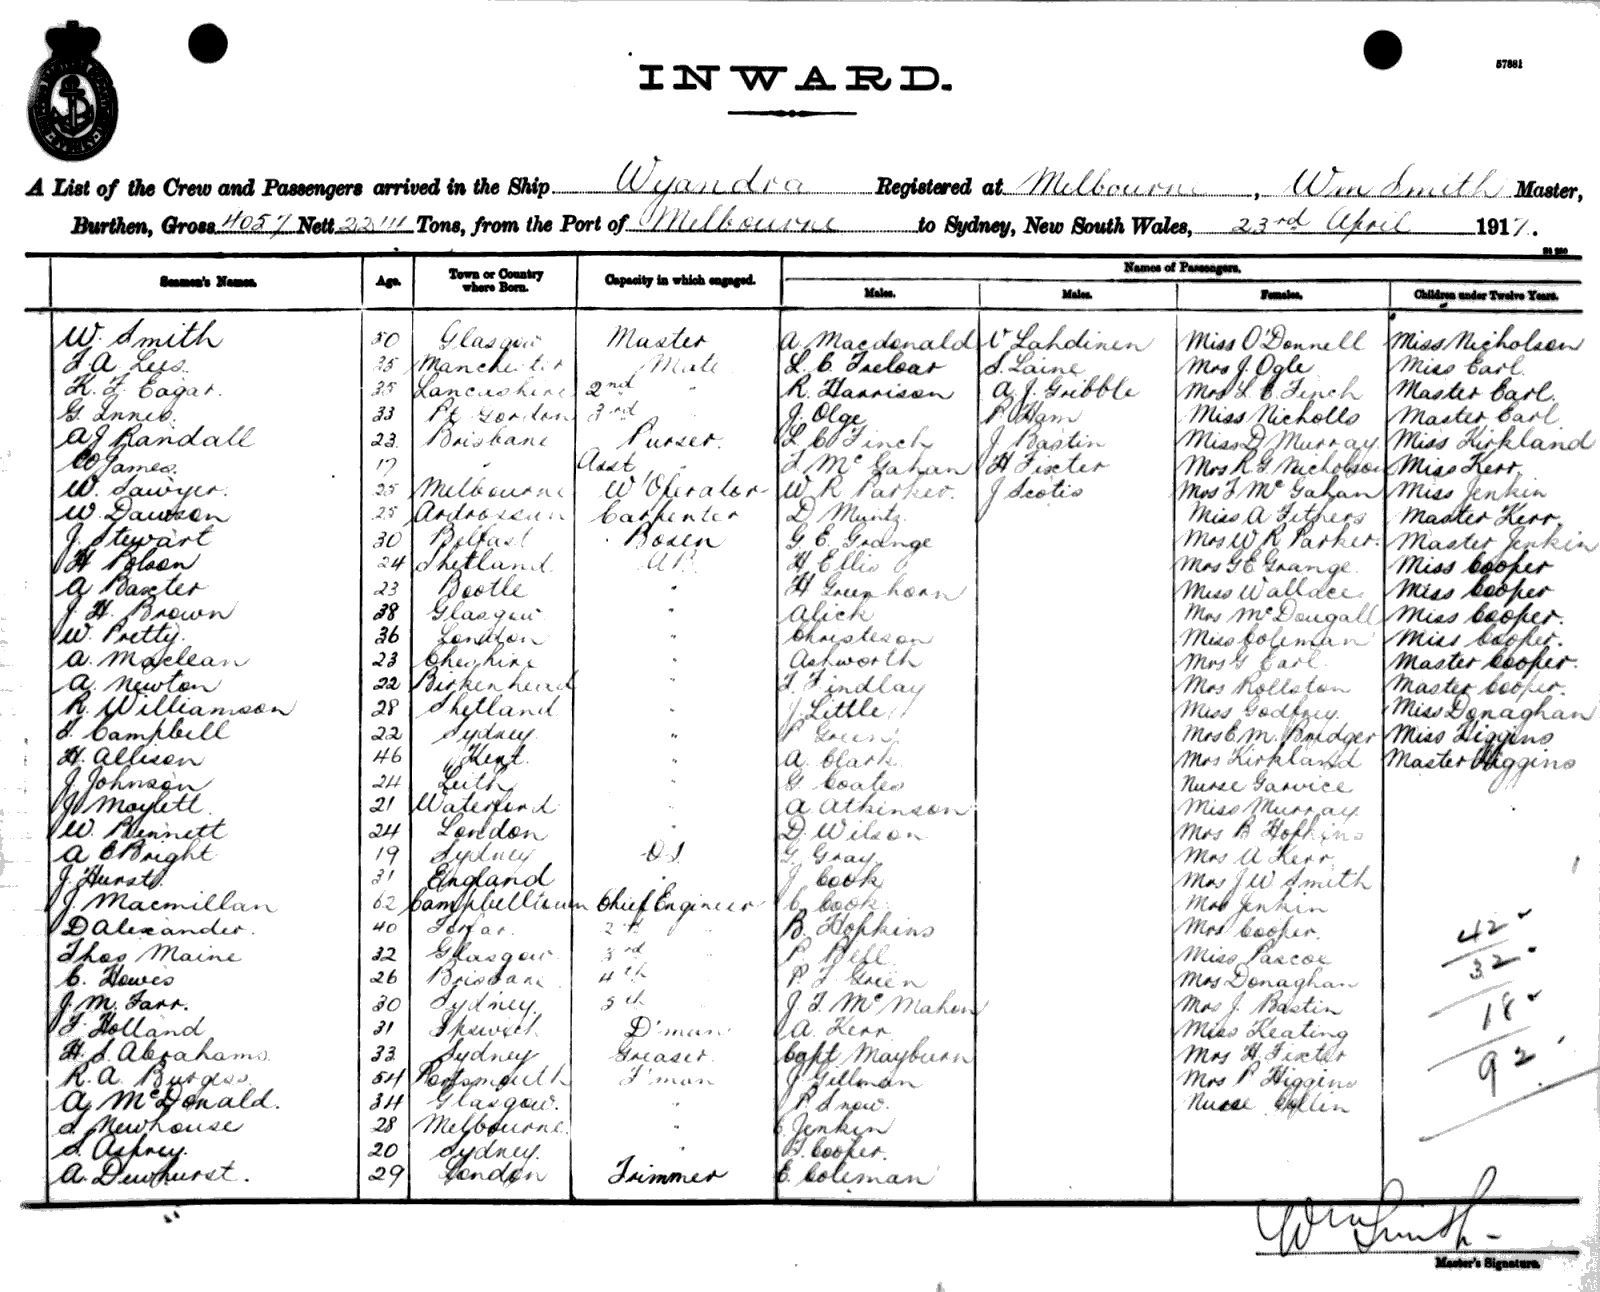 57881
INWARD.
A List of the Crew and Passengers arrived in the Ship Wyandra Registered at Melbourne, Wm Smith Master,
Burthen, Gross 4057 Nett Tons, from the Port of Melbourne to Sydney, New South Wales, 23rd April 1917.
Seamen's Names. Age. Town or Country where Born. Capacity in which engaged. Names of Passengers.
Males. Males. Females. Children under Twelve Years.
W. Smith 50 Glasgow Master A. Macdonald V Lahdinen Miss O'Donnell Miss Nicholson
F. A. Lees. 35 Manchester Mate L. C. Treloar S. Laine Mrs J. Ogle Miss Earl.
K. F. Eagar. 35 Lancashire 2nd " R. Harrison A. J. Gribble Mrs L C Finch Master Earl.
G. Innes. 33 Pt Gordon 3rd " J. Olge P. Ham Miss Nicholls Master Earl
A J Randall 23 Brisbane Purser. L C Finch J Bastin Miss D Murray. Miss Kirkland
W James. 17 " Asst " F. McGahan H Fixter Mrs R. G. Nicholson Miss Kerr.
W. Sawyer. 25 Melbourne W'Operator W R Parker. J Scotis Mrs F McGahan Miss Jenkin
W. Dawson 25 Ardrossan Carpenter D Muntz Miss A Fethers Master Kerr.
J. Stewart 30 Belfast Bosen G E Grange Mrs W R Parker. Master Jenkin
H Polson 24 Shetland A.B. H Ellis Mrs G E Grange. Miss Cooper
A Baxter 23 Bootle " H Greenhorn Miss Wallace Miss Cooper
J. H. Brown 38 Glasgow " Alick Mrs McDougall Miss Cooper.
W. Pretty. 36 London " Christeson Miss Coleman Miss Cooper.
A. Maclean 23 Cheshire " Ashworth Mrs G Earl. Master Cooper.
A. Newton 22 Birkenhead " F. Findlay Mrs Rollston Master Cooper.
R. Williamson 28 Shetland " J Little Miss Godfrey. Miss Donaghan
Campbell 22 Sydney. " P Green Mrs C. M. Bridger Miss Higgins
H. Allison 46 Kent. " A. Clark. Mrs Kirkland Master Higgins
J Johnson 24 Leith " G Coates Nurse Garvice
J. Moylett 21 Waterford " A Atkinson Miss Murray
W. Bennett 24 London " D Wilson Mrs B Hopkins
A C Bright 19 Sydney O.S. G. Gray Mrs A Kerr
J. Hurst. 31 England " J Cook Mrs J W Smith
J. Macmillan 62 Campbelltown Chief Engineer C Cook. Mrs Jenkin
D Alexander. 40 Forfar. 2nd " B. Hopkins Mrs Cooper. 42
Thos Maine 32 Glasgow 3rd " P. Bell Miss Pascoe 32
C. Howes 26 Brisbane 4th P. F. Green Mrs Donaghan
J. M. Farr. 30 Sydney. 5th J. F. McMahon Mrs J. Bastin 18
F. Holland 31 Ipswich D'man A. Kerr Miss Keating
H. S. Abrahams. 33 Sydney Greaser. Capt Mayburn Mrs H Fixter 92
R. A. Burgess. 54 Portsmouth F'man J Gillman Mrs P Higgins
A. McDonald. 34 Glasgow. " P. Snow. Nurse Collin
Newhouse 28 Melbourne. " Jenkin
S. Asprey. 20 Sydney. " Cooper.
A. Dewhurst. 29 London Trimmer E. Coleman
Wm Smith
Master's Signature.